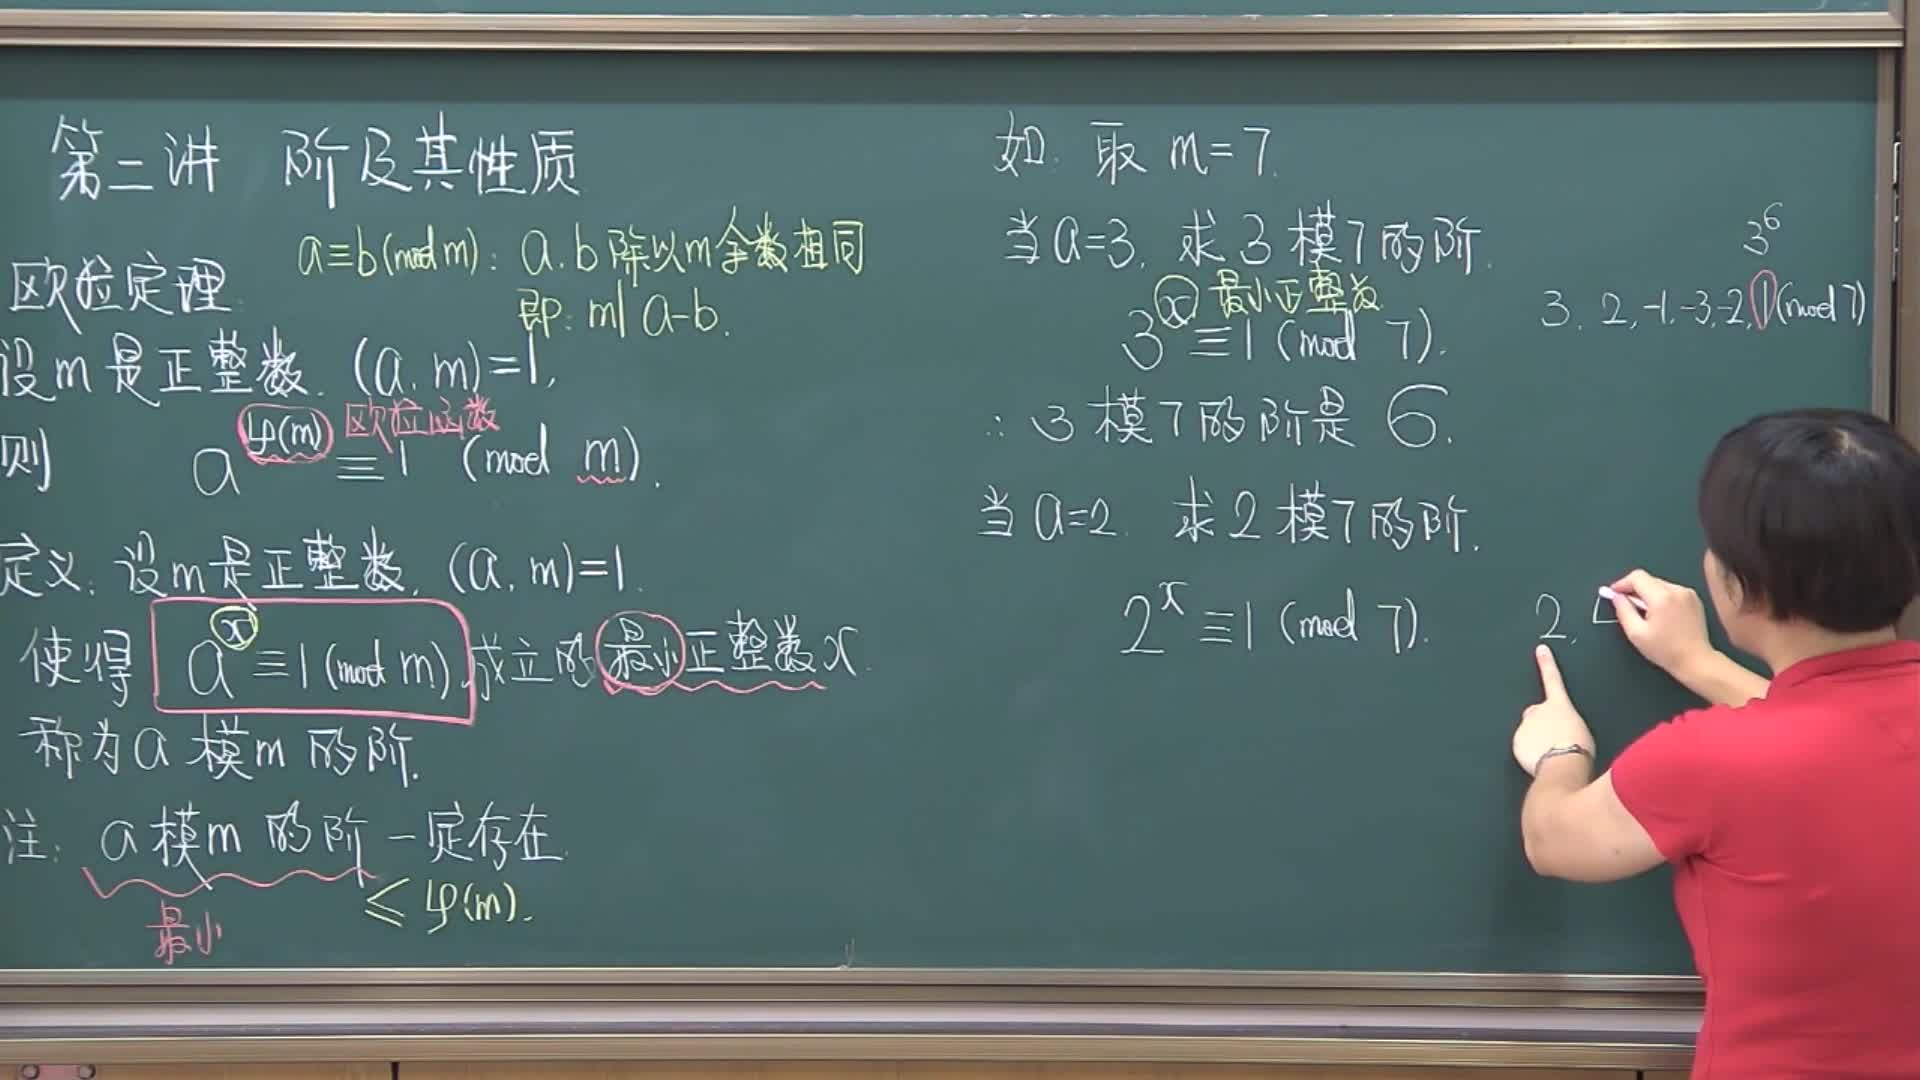 第二讲 阶及其性质
a≡b(mod m): a.b除以m余数相同
即: m|a-b.
欧拉定理:
设m是正整数. (a.m)=1,
则 a^φ(m) ≡1 (mod m).
欧拉函数
定义: 设m是正整数. (a.m)=1.
使得 a^x≡1(mod m)成立的最小正整数x.
称为a模m的阶.
注: a模m的阶一定存在.
最小 ≤φ(m).
如: 取m=7.
当a=3. 求3模7的阶.
最小正整数
3^x≡1(mod 7).
3^6
3. 2,-1,-3,-2,1(mod 7)
∴3模7的阶是6.
当a=2. 求2模7的阶.
2^x≡1(mod 7).
2,